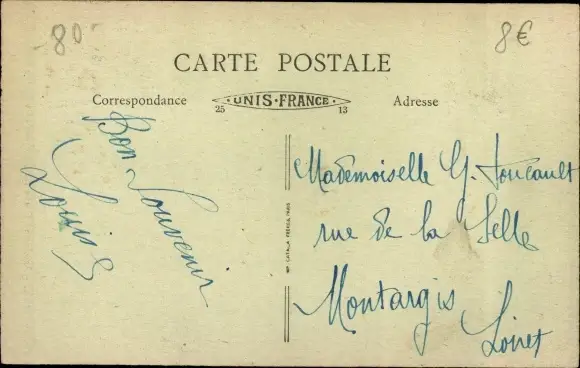 80
8€
CARTE POSTALE
Correspondance
UNIS-FRANCE
25
13
Adresse
Bon Souvenir
Louise
IMP. CATALA FRÈRES, PARIS
Mademoiselle G. Foucault
rue de la Selle
Montargis
Loiret